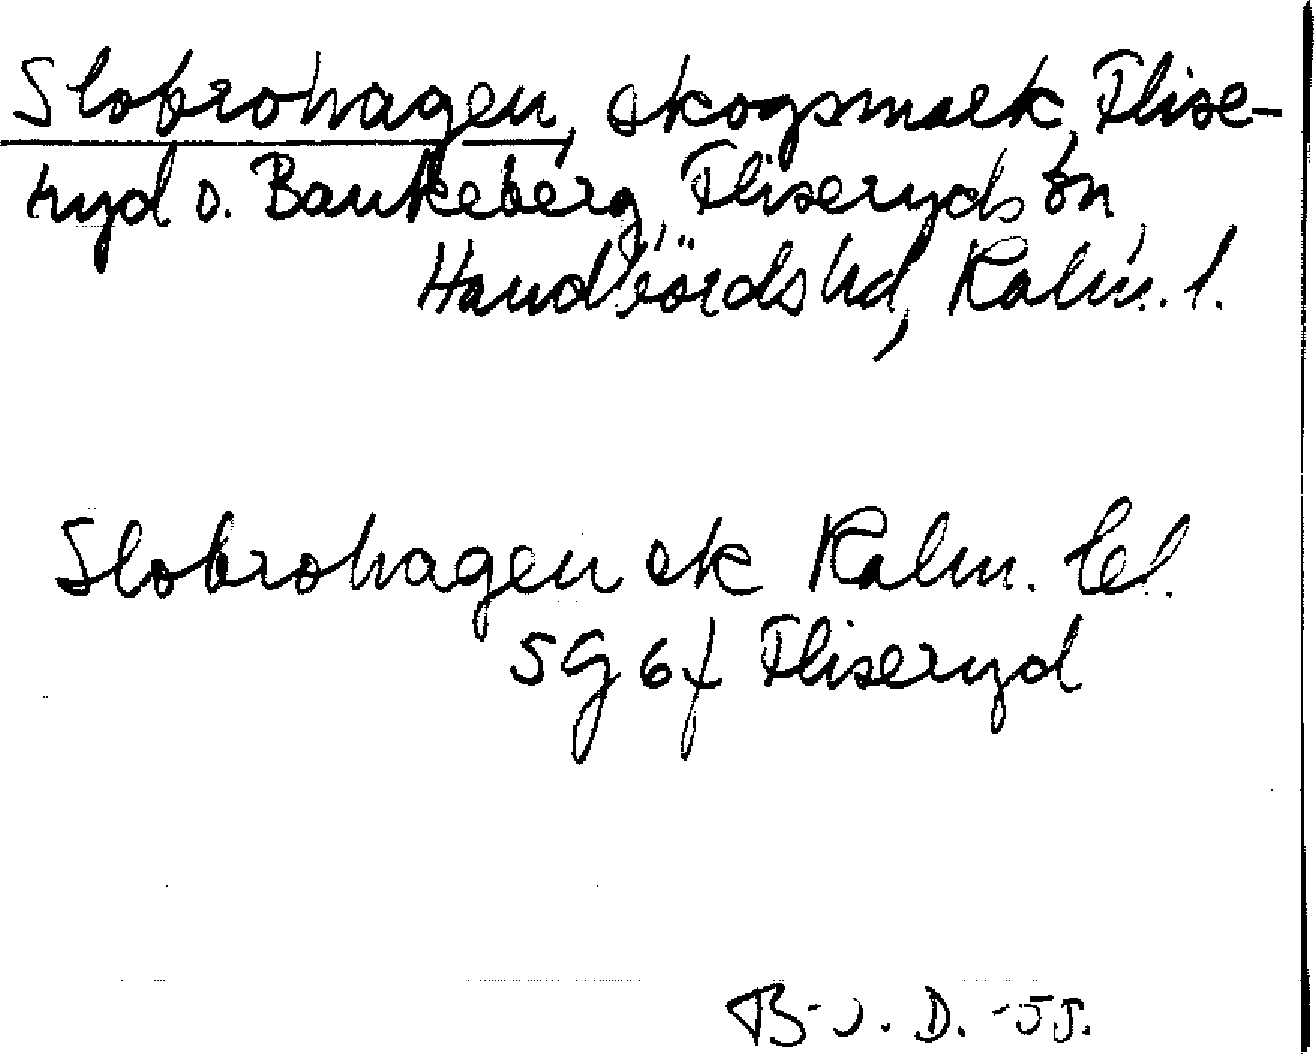 Slobrohagen, skogsmark, Flise-
ryd o. Bankeberg, Fliseryds sn
Handbörds hd, Kalm. l.
Slobrohagen sk Kalm. l.
5G6f Fliseryd
B-J. D. -55.